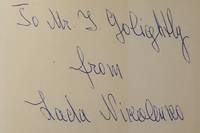 To Mr I. Golightly
from
Lada Nikolenko